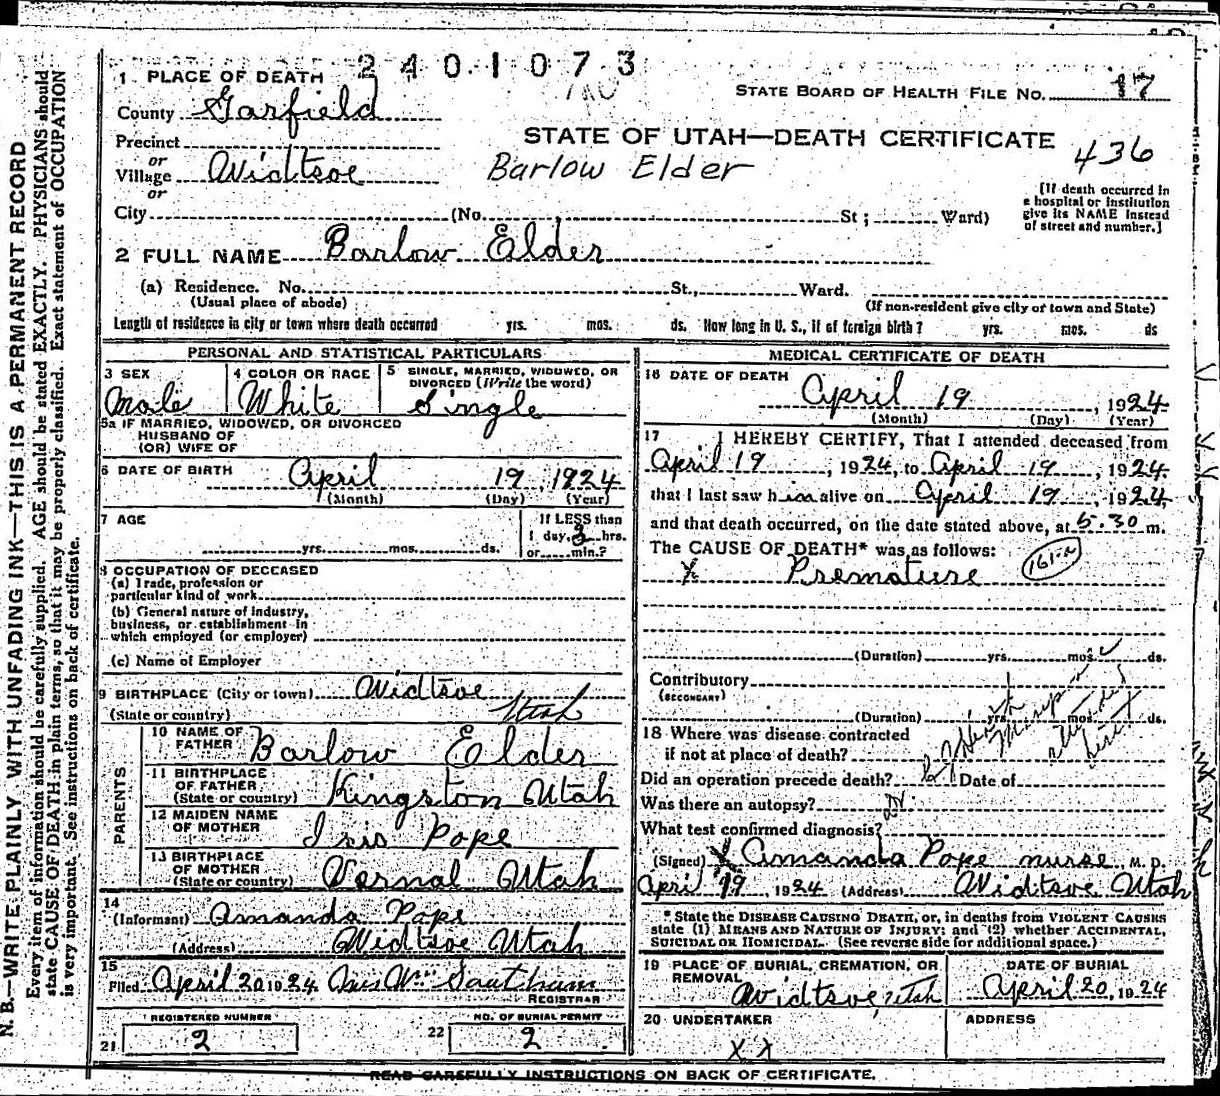 2401073
1 PLACE OF DEATH
STATE BOARD OF HEALTH FILE NO. 17
County Garfield
STATE OF UTAH—DEATH CERTIFICATE
436
Precinct
or
Village Widtsoe
Barlow Elder
or
City (No. , St; Ward)
[If death occurred in
a hospital or institution
give its NAME instead
of street and number.]
2 FULL NAME Barlow Elder
(a) Residence. No. St., Ward.
(Usual place of abode)
(If non-resident give city or town and State)
Length of residence in city or town where death occurred yrs. mos. ds. How long in U. S., if of foreign birth? yrs. mos. ds
PERSONAL AND STATISTICAL PARTICULARS
3 SEX
Male
4 COLOR OR RACE
White
5 SINGLE, MARRIED, WIDOWED, OR
DIVORCED (Write the word)
Single
5a IF MARRIED, WIDOWED, OR DIVORCED
HUSBAND OF
(OR) WIFE OF
6 DATE OF BIRTH April 19, 1924
(Month) (Day) (Year)
7 AGE
yrs. mos. ds.
If LESS than
1 day, 3 hrs.
or min.?
8 OCCUPATION OF DECEASED
(a) Trade, profession or
particular kind of work
(b) General nature of industry,
business, or establishment in
which employed (or employer)
(c) Name of Employer
9 BIRTHPLACE (City or town) Widtsoe
(State or country) Utah
PARENTS
10 NAME OF
FATHER Barlow Elder
11 BIRTHPLACE
OF FATHER
(State or country) Kingston Utah
12 MAIDEN NAME
OF MOTHER Isis Pope
13 BIRTHPLACE
OF MOTHER
(State or country) Vernal Utah
14
(Informant) Amanda Pope
(Address) Widtsoe Utah
15
Filed April 20 1924
REGISTRAR
REGISTERED NUMBER
21 2
NO. OF BURIAL PERMIT
22 2
MEDICAL CERTIFICATE OF DEATH
16 DATE OF DEATH
April 19, 1924
(Month) (Day) (Year)
17 I HEREBY CERTIFY, That I attended deceased from
April 19, 1924, to April 19, 1924
that I last saw him alive on April 19, 1924,
and that death occurred, on the date stated above, at 5.30 m.
The CAUSE OF DEATH* was as follows:
x Premature 161-a
(Duration) yrs. mos. ds.
Contributory
(SECONDARY)
(Duration) yrs. mos. ds.
18 Where was disease contracted
if not at place of death?
Did an operation precede death? Date of
Was there an autopsy?
What test confirmed diagnosis?
(Signed) x Amanda Pope nurse, M. D.
April 19, 1924 (Address) Widtsoe Utah
* State the DISEASE CAUSING DEATH, or, in deaths from VIOLENT CAUSES
state (1) MEANS AND NATURE OF INJURY; and (2) whether ACCIDENTAL,
SUICIDAL OR HOMICIDAL. (See reverse side for additional space.)
19 PLACE OF BURIAL, CREMATION, OR
REMOVAL
Widtsoe, Utah
DATE OF BURIAL
April 20, 1924
20 UNDERTAKER
x x
ADDRESS
READ CAREFULLY INSTRUCTIONS ON BACK OF CERTIFICATE.
N. B.—WRITE PLAINLY, WITH UNFADING INK—THIS IS A PERMANENT RECORD
Every item of information should be carefully supplied. AGE should be stated EXACTLY. PHYSICIANS should
state CAUSE OF DEATH in plain terms, so that it may be properly classified. Exact statement of OCCUPATION
is very important. See instructions on back of certificate.